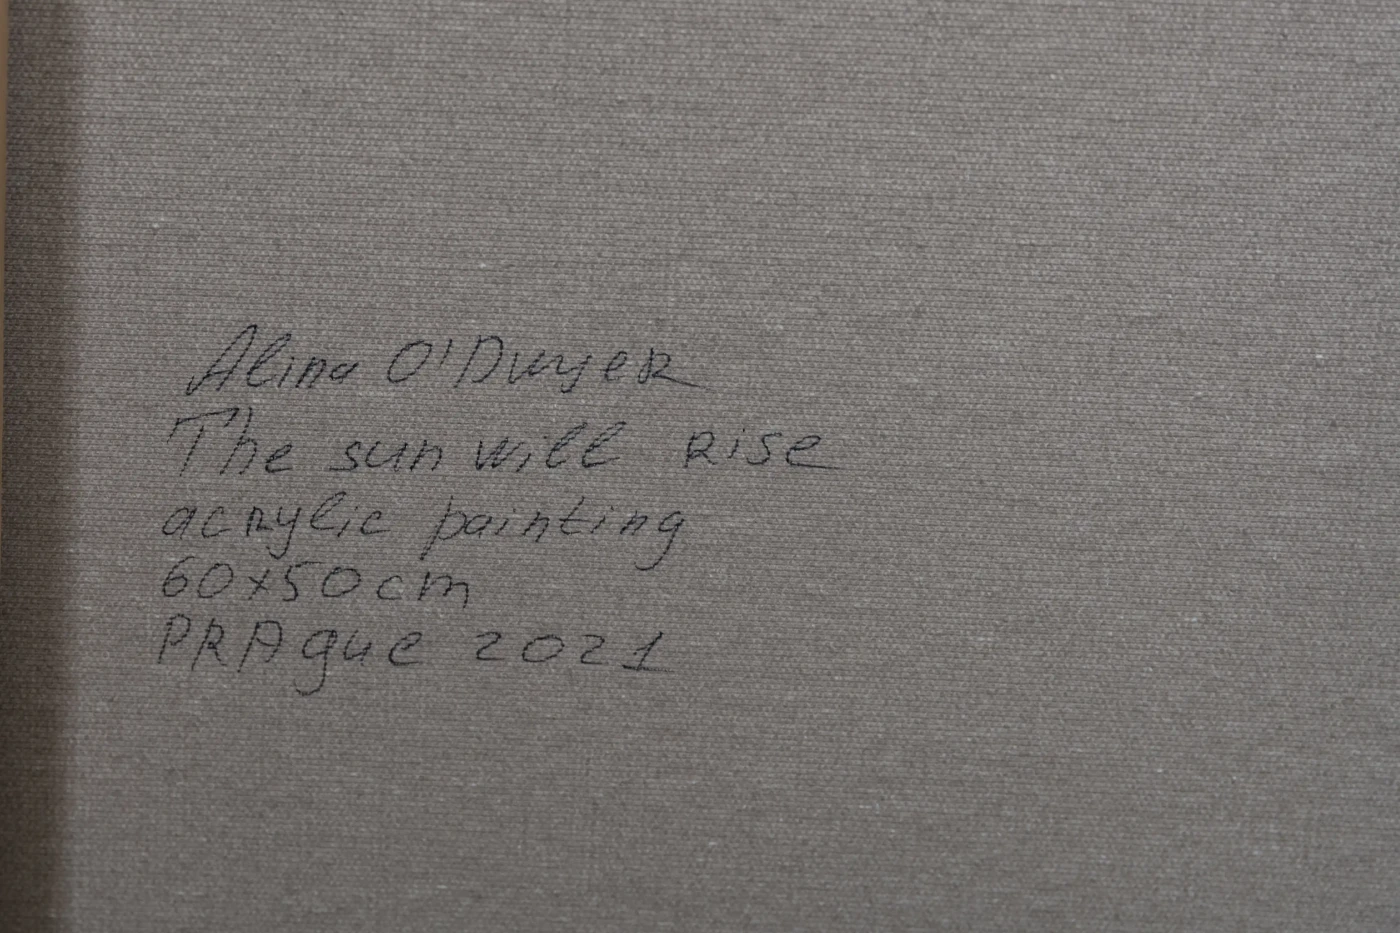 Alina O'Dwyer
The sun will Rise
acrylic painting
60x50cm
PRAgue 2021